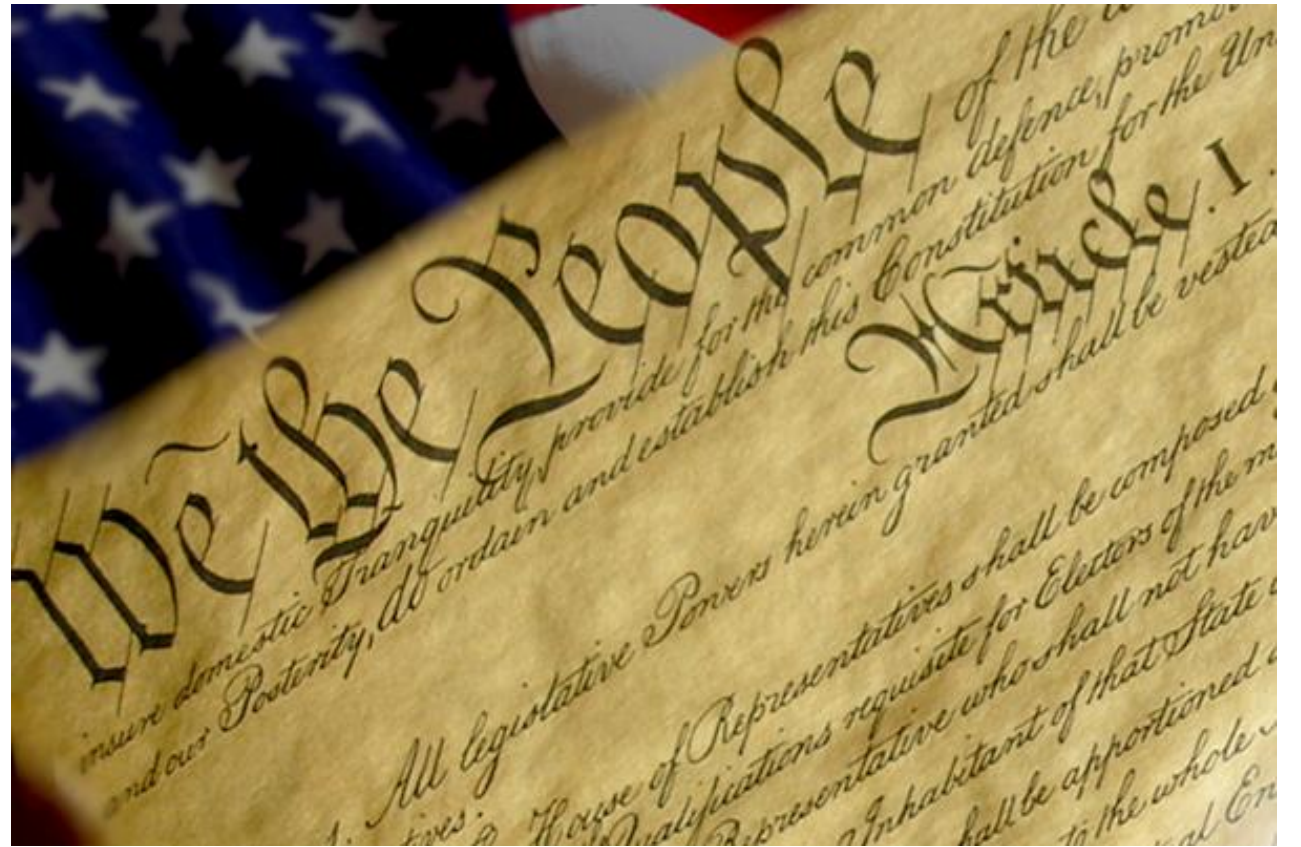 We the People of the
insure domestic Tranquility, provide for the common defence, promo
and our Posterity, do ordain and establish this Constitution for the Un
Article. I.
All legislative Powers herein granted shall be vested
House of Representatives shall be composed
Qualifications requisite for Electors of the m
Representative who shall not hav
Inhabitant of that State
hall be apportioned
to the whole